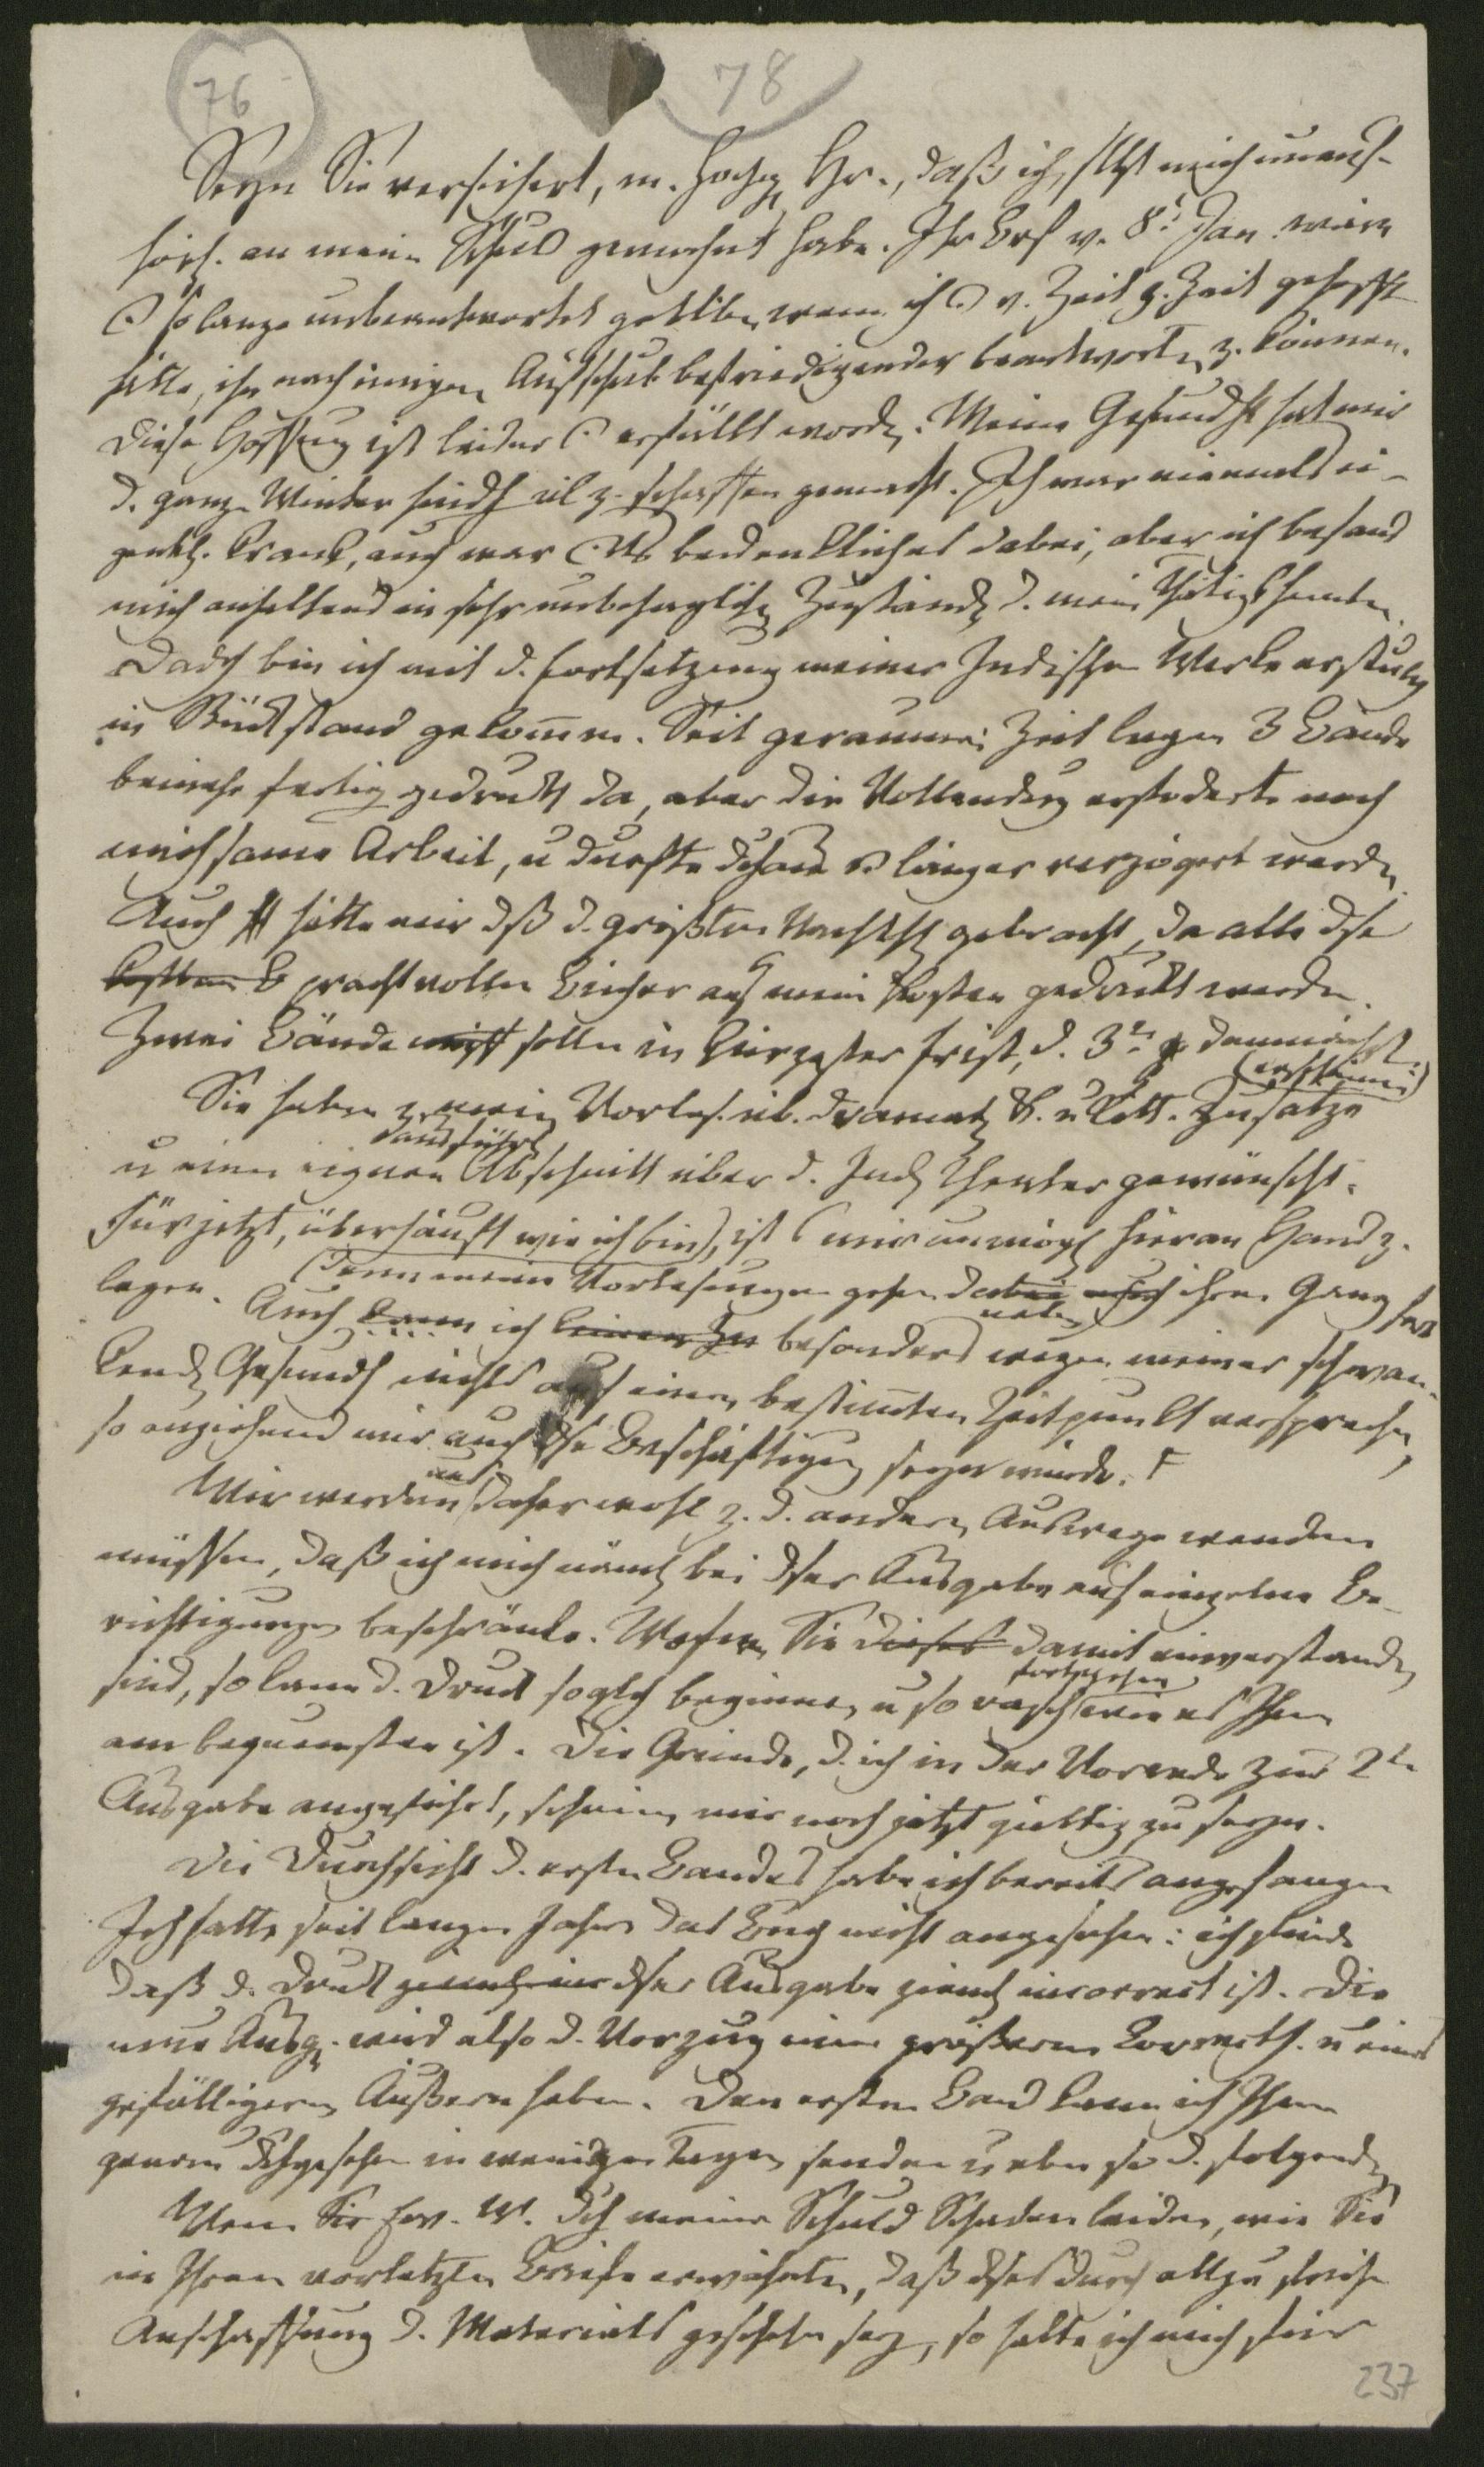 76
78
Seyn Sie versichert, m. hochg Hr., daß ich selbst mich unauf-
hörl. an meine Schuld gemahnt habe. Ihr Brf v. 8t Jan wäre
so lange unbeantwortet geblieben, wenn ich v. Zeit z. Zeit gehofft
hätte, ihn nach einigem Aufschub befriedigender beantworten z. können.
Diese Hoffnung ist leider erfüllt worden. Meine Gesundht hat mir
d. ganzen Winter hindch viel z. schaffen gemacht. Ich war niemals ei-
gentl. krank, auch war bedenkliches dabei, aber ich befand
mich anhaltend in sehr unbehaglichen Zustande d. meine Thätigk hemmte.
Dadch bin ich mit d. Fortsetzung meiner Indischen Werke
in Rückstand gekommen. Seit geraumer Zeit lagen 3 Bände
beinahe fertig gedruckt da, aber die Vollendung erfoderte noch
mühsame Arbeit, u durfte länger verzögert werden
Auch hätte mir dß d. größten Nachthl gebracht, da alle dse
prachtvollen Bücher auf meine Kosten gedruckt werden.
Zwei Bände sollen in kürzester Frist, d. 3te demnächst
erscheinen
Sie haben zu meinen Vorles. üb. dramat K. u Litt. Zusätze
u einen eignen Abschnitt über d. Ind Theater gewünscht.
Für jetzt, überhäuft wie ich bin, ist mir unmögl hieran Hand z.
legen. denn meine Vorlesungen gehen daneben ihren Gang fort
Auch kann ich besonders wegen meiner schwan-
kenden Gesundh nichts auf einen bestimten Zeitpunkt versprechen,
so anziehend mir auch dse Beschäftigung seyn würde. F
Wir werden uns daher wohl z. d. andern Auswege wenden
müssen, daß ich mich näml bei dser Ausgabe auf einzelne Be-
richtigungen beschränke. Wofern Sie dieses damit einverstanden
sind, so kann d. Druck soglch beginnen, u so rasch fortgehen wie es Ihnen
am bequemsten ist. Die Gründe, d. ich in der Vorrede zur 2ten
Ausgabe angeführt, scheinen mir noch jetzt gültig zu seyn.
Die Durchsicht d. ersten Bandes habe ich bereits angefangen
Ich hatte seit langen Jahren das Buch nicht angesehen: ich finde
daß d. Druck dser Ausgabe zieml incorrect ist. Die
neue Ausg. wird also d. Vorzug einer größeren Correcth. u eines
gefälligern Äußern haben. Den ersten Band kann ich Ihnen
genau dchgesehen in wenigen Tagen senden u eben so d. folgenden
Wenn Sie Ew. W. dch meine Schuld Schaden leiden, wie Sie
in Ihrem vorletzten Briefe erwähnten, daß dses durch allzu frühe
Anschaffung d. Materials geschehen sey, so halte ich mich für
237